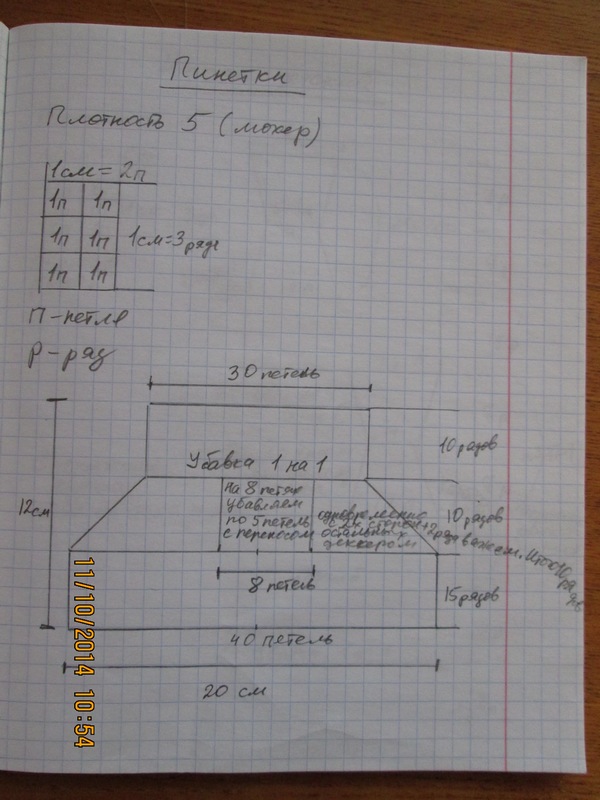 Пинетки
Плотность 5 (мохер)
1см = 2п
1п 1п
1п 1п 1см=3ряда
1п 1п
П-петля
Р-ряд
30 петель
10 рядов
Убавка 1 на 1
12см
на 8 петях
убавляем
по 5 петель
с переносом
одновременно
с 2х сторон
остальных
деккером
10 рядов
ряда вяжем. Итого 10 рядов
8 петель
15 рядов
40 петель
20 см
11/10/2014 10:54